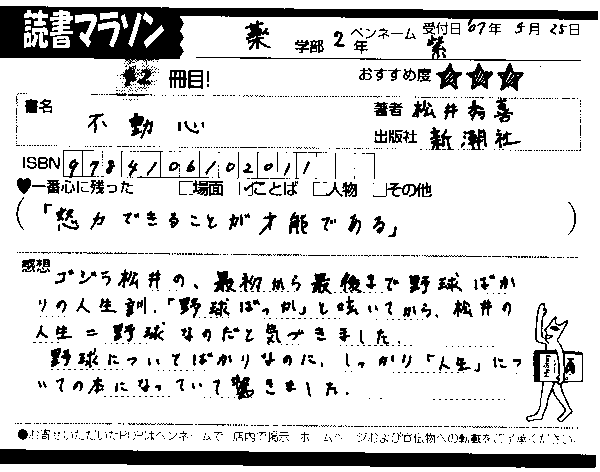 読書マラソン
薬 学部 2年 ペンネーム 紫 受付日 '07年 5月 25日
42 冊目! おすすめ度 ★★★
書名 不動心 著者 松井秀喜
出版社 新潮社
ISBN 9784106102011
♥一番心に残った □場面 ☑ことば □人物 □その他
(「努力できることが才能である」)
感想
ゴジラ松井の、最初から最後まで野球ばか
りの人生訓。「野球ばっか」と呟いてから、松井の
人生=野球なのだと気づきました。
野球についてばかりなのに、しっかり「人生」につ
いての本になっていて驚きました。
●お寄せいただいたPOPはペンネームで、店内で掲示、ホームページおよび宣伝物への転載をご了承ください。